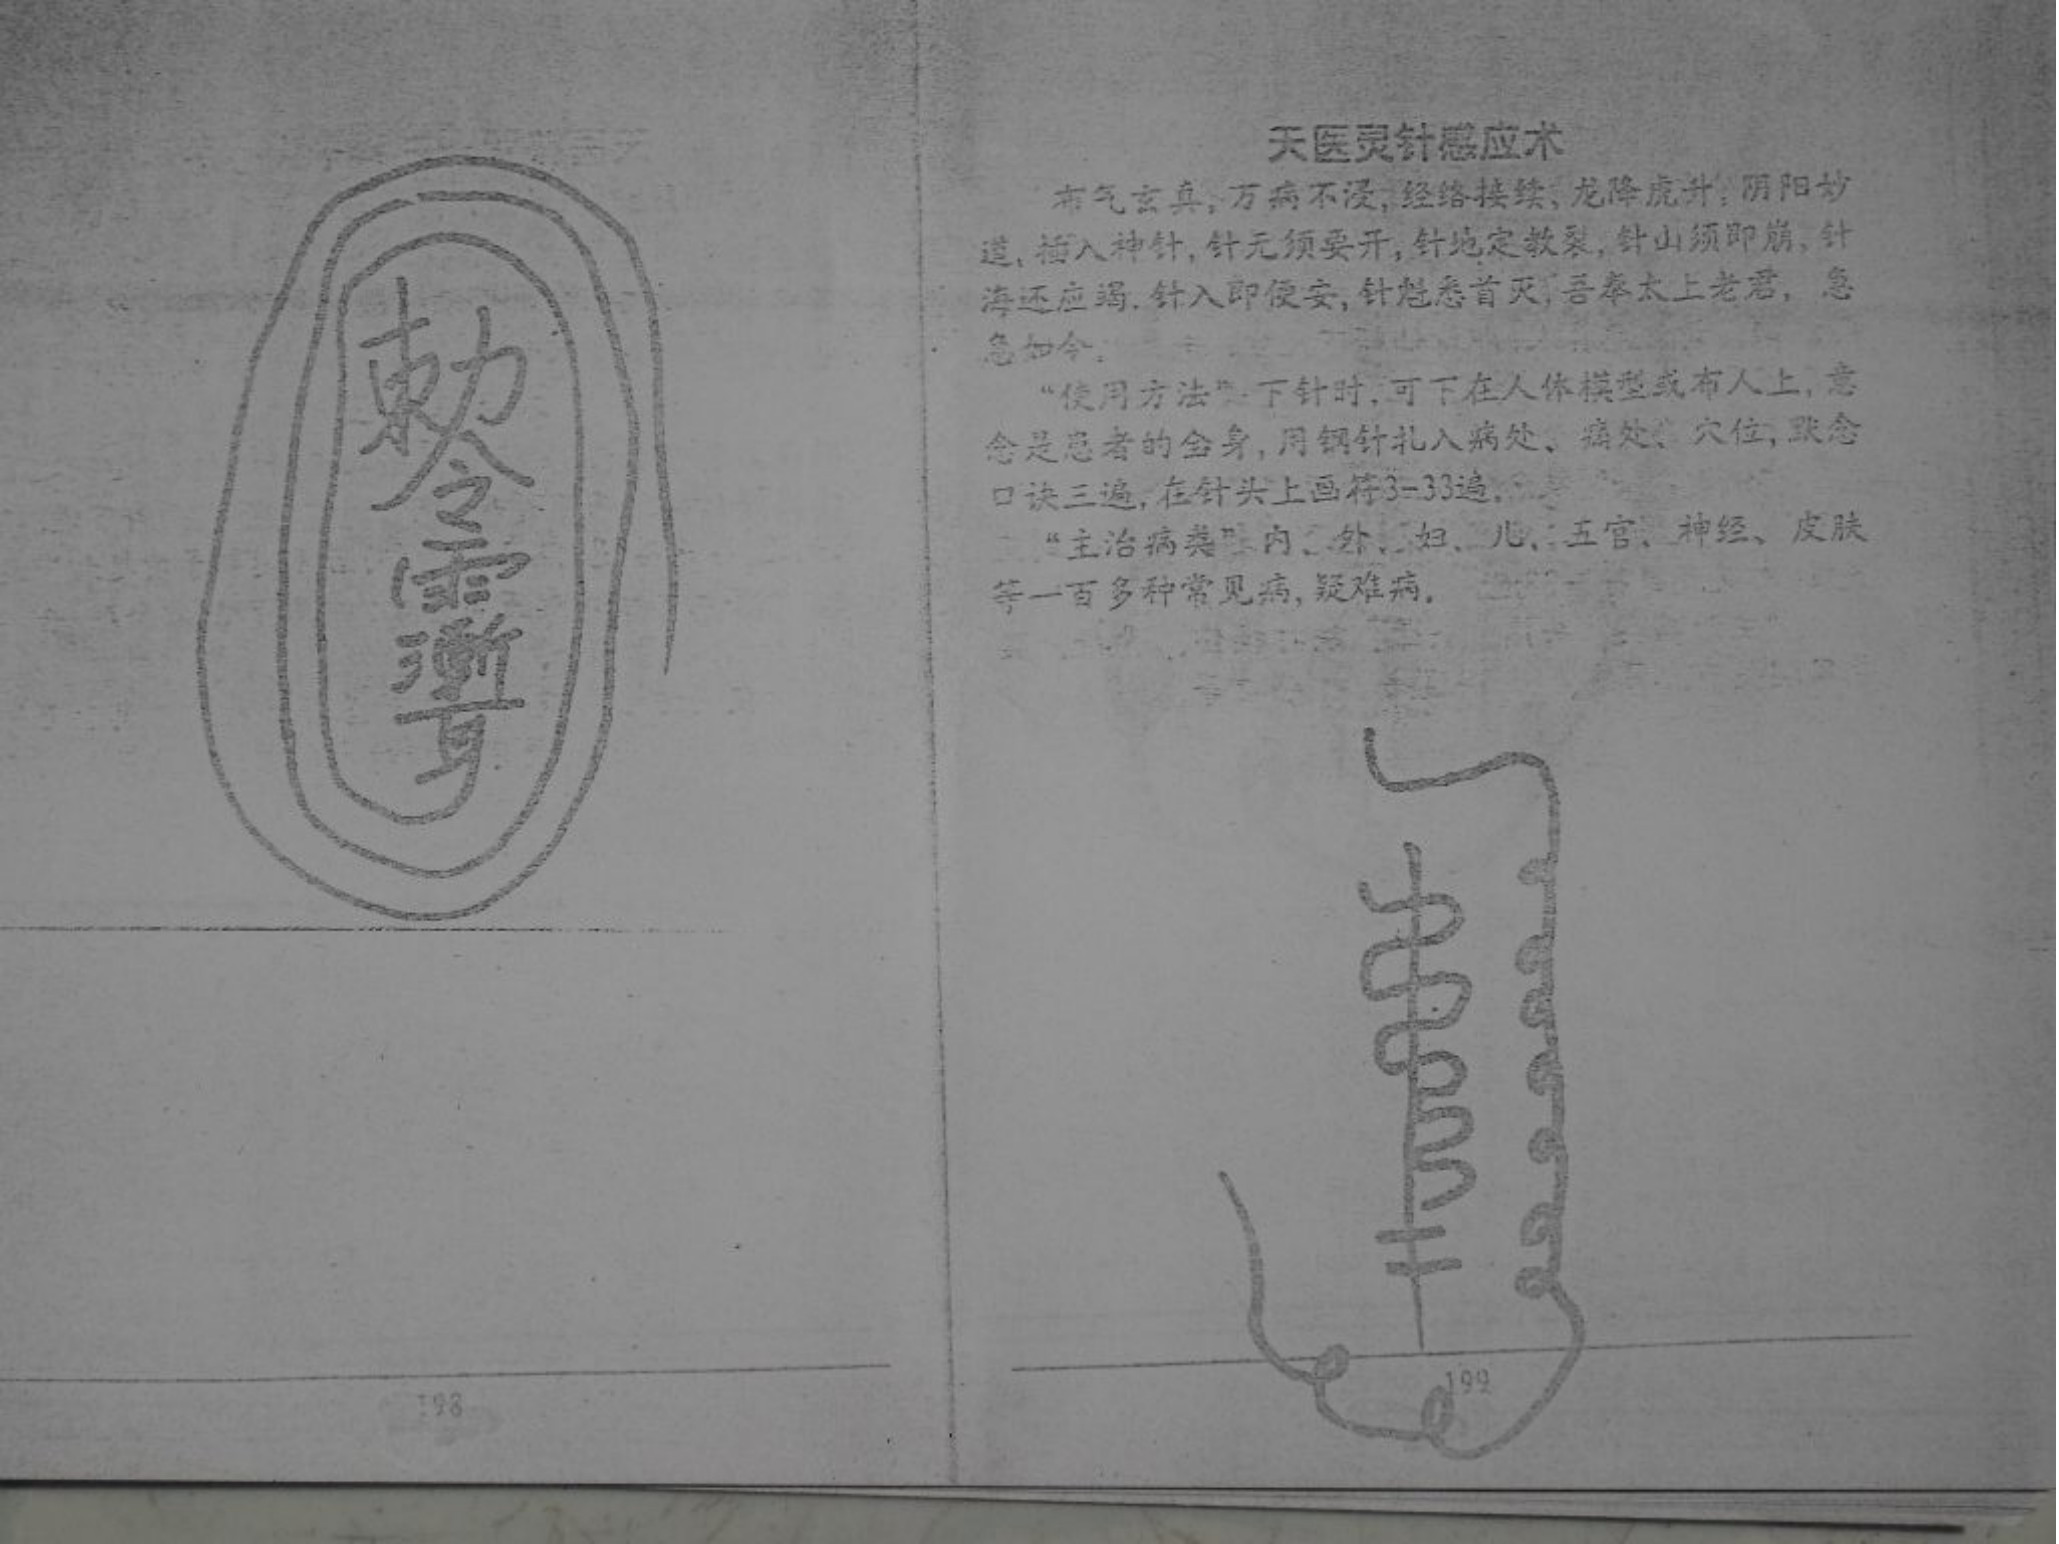 敕令
198
天医灵针感应术
布气玄真,万病不浸,经络接续,龙降虎升,阴阳妙
道,插入神针,针元须要开,针地定教裂,针山须即崩,针
海还应竭.针入即便安,针尪悉首灭,吾奉太上老君,急
急如令。
“使用方法”下针时,可下在人体模型或布人上,意
念是患者的全身,用钢针扎入病处、痛处、穴位,默念
口诀三遍,在针头上画符3-33遍.
“主治病类”内、外、妇、儿、五官、神经、皮肤
等一百多种常见病,疑难病.
199